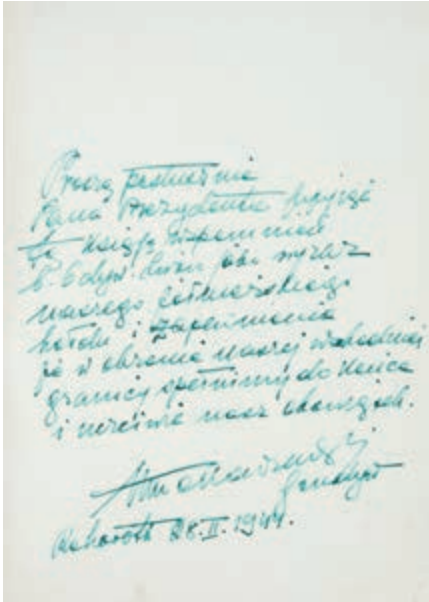 Proszę posłusznie
Pana Prezydenta przyjąć
tę księgę wspomnień
b. 6 dyw. lwów. jako wyraz
naszego żołnierskiego
hołdu i zapewnienia
że w obronie naszej wschodniej
granicy spełnimy do końca
i uczciwie nasz obowiązek.
28.II.1944.